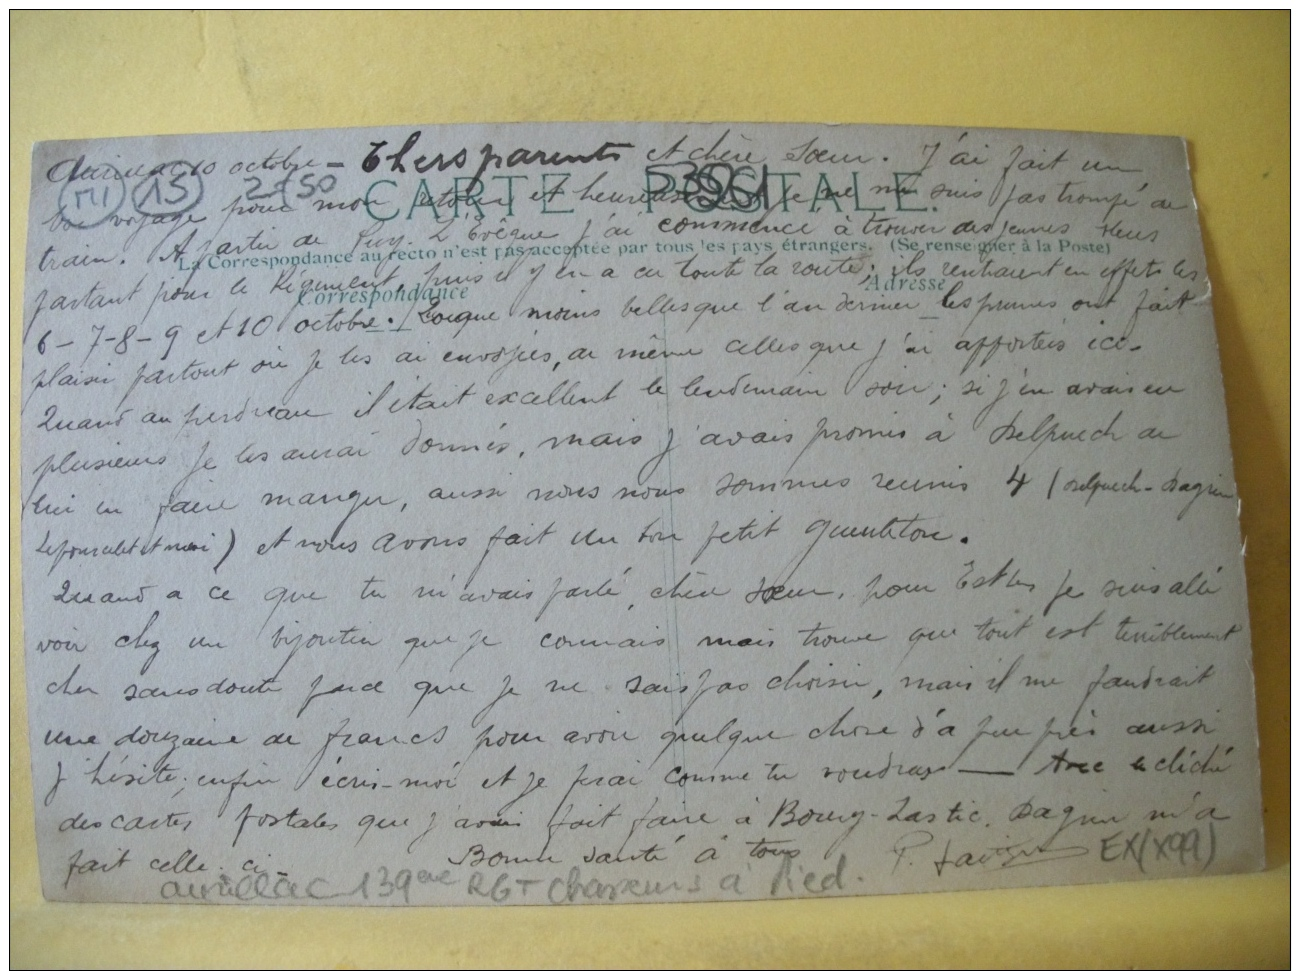 Aurillac 10 octobre – Chers parents et chère Sœur. J'ai fait un
bon voyage pour mon retour et heureusement je ne me suis pas trompé de
M1 15 2-50 5396
CARTE POSTALE.
train. A partir de Puy-L'Evêque j'ai commencé à trouver des jeunes bleus
La Correspondance au recto n'est pas acceptée par tous les pays étrangers. (Se renseigner à la Poste)
partant pour le Régiment, puis il y en a eu toute la route; ils rentraient en effet les
Correspondance Adresse
6-7-8-9 et 10 octobre. Quoique moins belles que l'an dernier les prunes ont fait
plaisir partout où je les ai envoyées, de même celles que j'ai apportées ici.
Quand au perdreau il était excellent le lendemain soir; si j'en avais eu
plusieurs je les aurai donnés, mais j'avais promis à Delpuech de
lui en faire manger, aussi nous nous sommes reunis 4 (Delpuech - Dagrin
et moi) et nous avons fait un bon petit gueuleton.
Quand a ce que tu m'avais parlé, chère sœur, pour Esther je suis allé
voir chez un bijoutier que je connais mais trouve que tout est terriblement
cher sans doute parce que je ne sais pas choisir, mais il me faudrait
une douzaine de francs pour avoir quelque chose d'a peu près aussi
j'hésite; enfin écris-moi et je ferai comme tu voudras — Avec le cliché
des cartes postales que j'avais fait faire à Bourg-Lastic. Dagrin m'a
fait celle-ci - Bonne santé à tous P. EX(X99)
aurillac 139eme RGT Chasseurs à Pied.